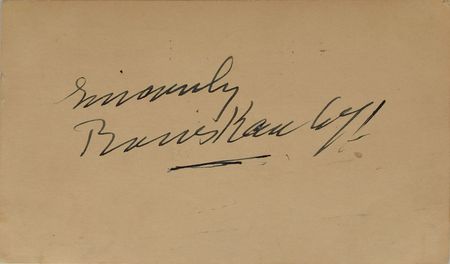 Sincerely
Boris Karloff